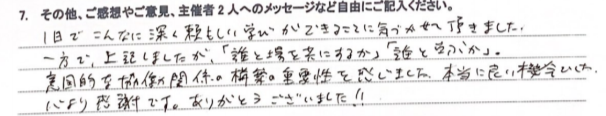 7. その他、ご感想やご意見、主催者2人へのメッセージなど自由にご記入ください。
1日でこんなに深く頼もしい学びができることに気づかせて頂きました。
一方で、上記しましたが、「誰と場を共にするか」「誰と学ぶか」。
意図的な協働関係の構築の重要性を感じました。本当に良い機会でした。
心より感謝です。ありがとうございました!!